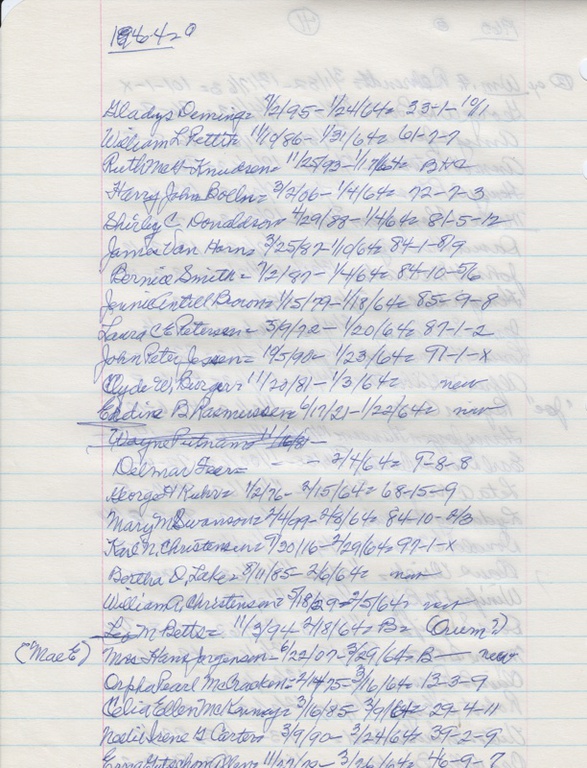 1964
Gladys Deming = 7/2/95 - 1/24/64 = 33-1-10/1
William L Pettit = 11/19/86 - 1/31/64 = 61-7-7
Ruth Knudson = 11/25/93 - 1/17/64 =
Harry John Bolln = 3/2/06 - 1/4/64 = 72-7-3
Shirley C. Donaldson = 4/29/88 - 1/4/64 = 81-5-12
James Van Horn = 3/25/87 - 1/10/64 = 84-1-8/9
Bernice Smith = 7/2/87 - 1/4/64 = 84-10-5/6
Jennie 1/15/79 - 1/18/64 = 85-9-8
Laura C E Peterson = 5/9/72 - 1/20/64 = 87-1-2
John Peter 1/23/64 = 97-1-X
Clyde W. 11/20/81 - 1/3/64 = new
B. Rasmussen = 9/17/21 - 1/22/64 = new
Wayne Putnam
Delmar = - - - 2/4/64 = 9-8-8
George H Kuhr = 1/2/76 - 2/15/64 = 68-15-9
Mary M Swanson = 84-10-2/3
Karl N. Christensen = 9/30/16 - 2/29/64 = 97-1-X
Bertha O. Lake = 8/11/85 - 2/6/64 = new
William A. Christensen = 5/18/29 = 2/5/64 = new
Leo M Betts = 11/3/94 2/18/64 = B = (Ovum?)
("Mae E") Mrs Hans Jorgenson = 6/22/07 - 3/29/64 = B — new
Orpha Pearl McCracken = 2/14/75 - 3/16/64 = 13-3-9
Celia Ellen McKinney = 3/16/85 - 3/9/64 = 29-4-11
Irene G Carter = 3/9/90 - 3/24/64 = 39-2-9
3/26/64 = 46-9-7